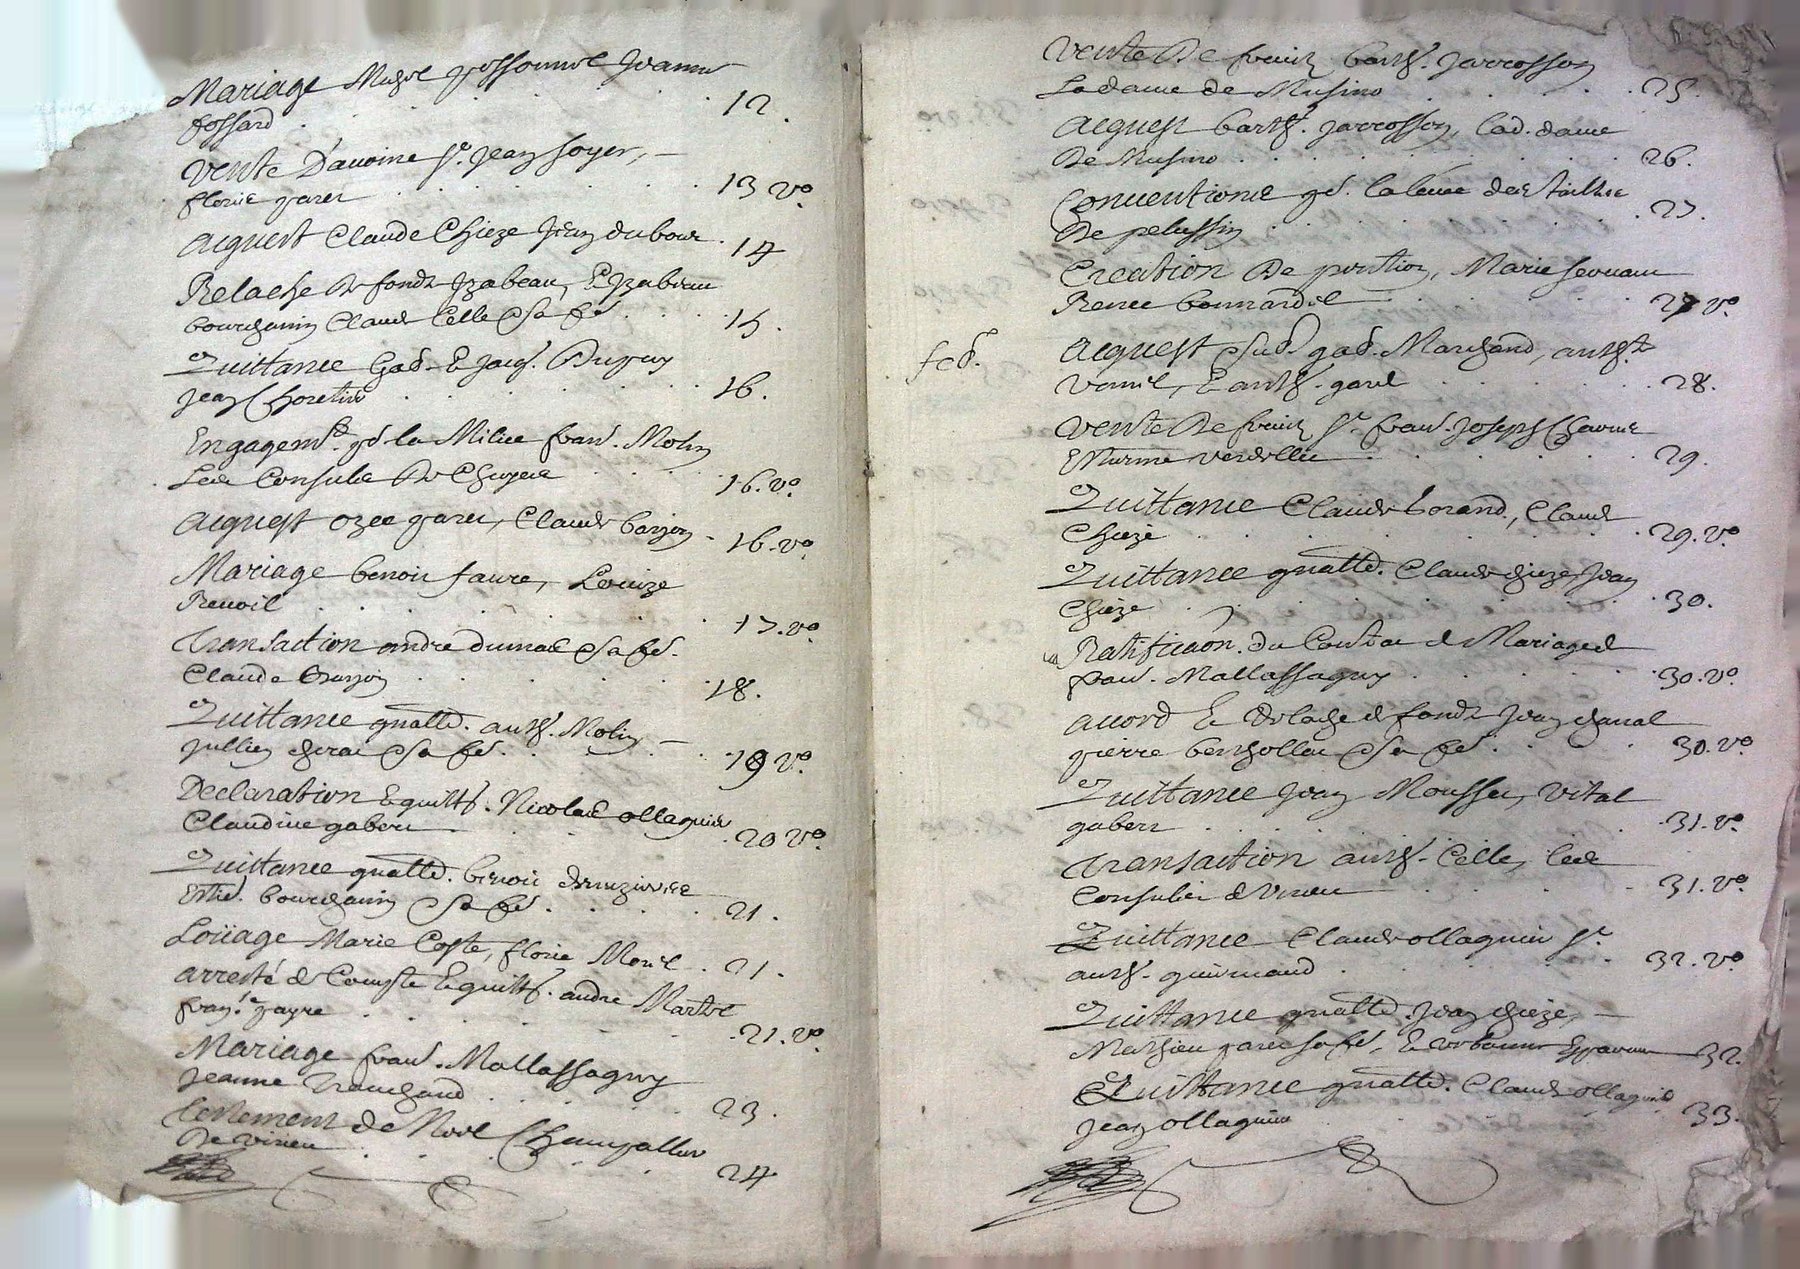 Mariage Michel poissonnel Jeanne
fossard . 12.
Vente D'avoine Sr. Jean soyer, —
florie garet 13 Vo
Acquest Claude Chieze Jean dubour . 14
Relache de fonds Izabeau, & Izabeau
bourchanin Claude Celle & sa fe 15.
Quittance Gad. & Jacq. Dupuy
jean Choretin 16.
Engagemt. pr. la Milice fran. Molin
Les Consuls De Chuyes 16. Vo.
Acquest ozee garet, Claude barjon . 16. Vo
Mariage benoit faure, Louize
Renoil 17. Vo
Transaction andre dumas & sa fe.
Claude barjon 18.
Quittance gnalle. anth. Molin —
jullien cherac & sa fe. 19 Vo.
Declaration & quitt. Nicolas ollagnier
Claudine gabert 20 Vo.
Quittance gnalle. benoit
bourchanin & sa fe. 21.
Loüage Marie Coste, florie Morel . 21.
arresté de Compte & quitt. andre Martel
gayre 21. Vo.
Mariage fran. Mallassagny
jeanne Tranchand 23.
testement de Noel Champallier
De virieu 24
Vente De fruits barth. jarrosson
La dame de Musino 25.
Acquest barth. jarrosson, lad. dame
De Musino 26.
Conventions pr. la levée des tailles
De pelussin 27.
Creation De pention, Marie servant
Renee bonnardel 27 Vo.
Acquest sud. gad. Marchand, anth.
Vernil, & anth. garel 28.
Vente De fruits Sr. fran. joseph Charme
29.
Quittance Claude borand, Claude
Chieze 29. Vo
Quittance gnalle. Claude chieze, Jean
Chieze 30.
Ratification. du Contrac de Mariage de
fran. Mallassagny 30. Vo.
accord & Relache de fonds Jean chanal
pierre bertholla & sa fe. 30. Vo
Quittance Jean Mousset, Vital
gabert 31. Vo.
Transaction anth. Celle, les
Consuls de Virieu 31. Vo
Quittance Claude ollagnier Sr.
anth. guirmand 32. Vo
Quittance gnalle. Jean chieze, —
Mathieu garet & sa fe, & 32.
Quittance gnalle. Claude ollagnier
jean ollagnier 33.